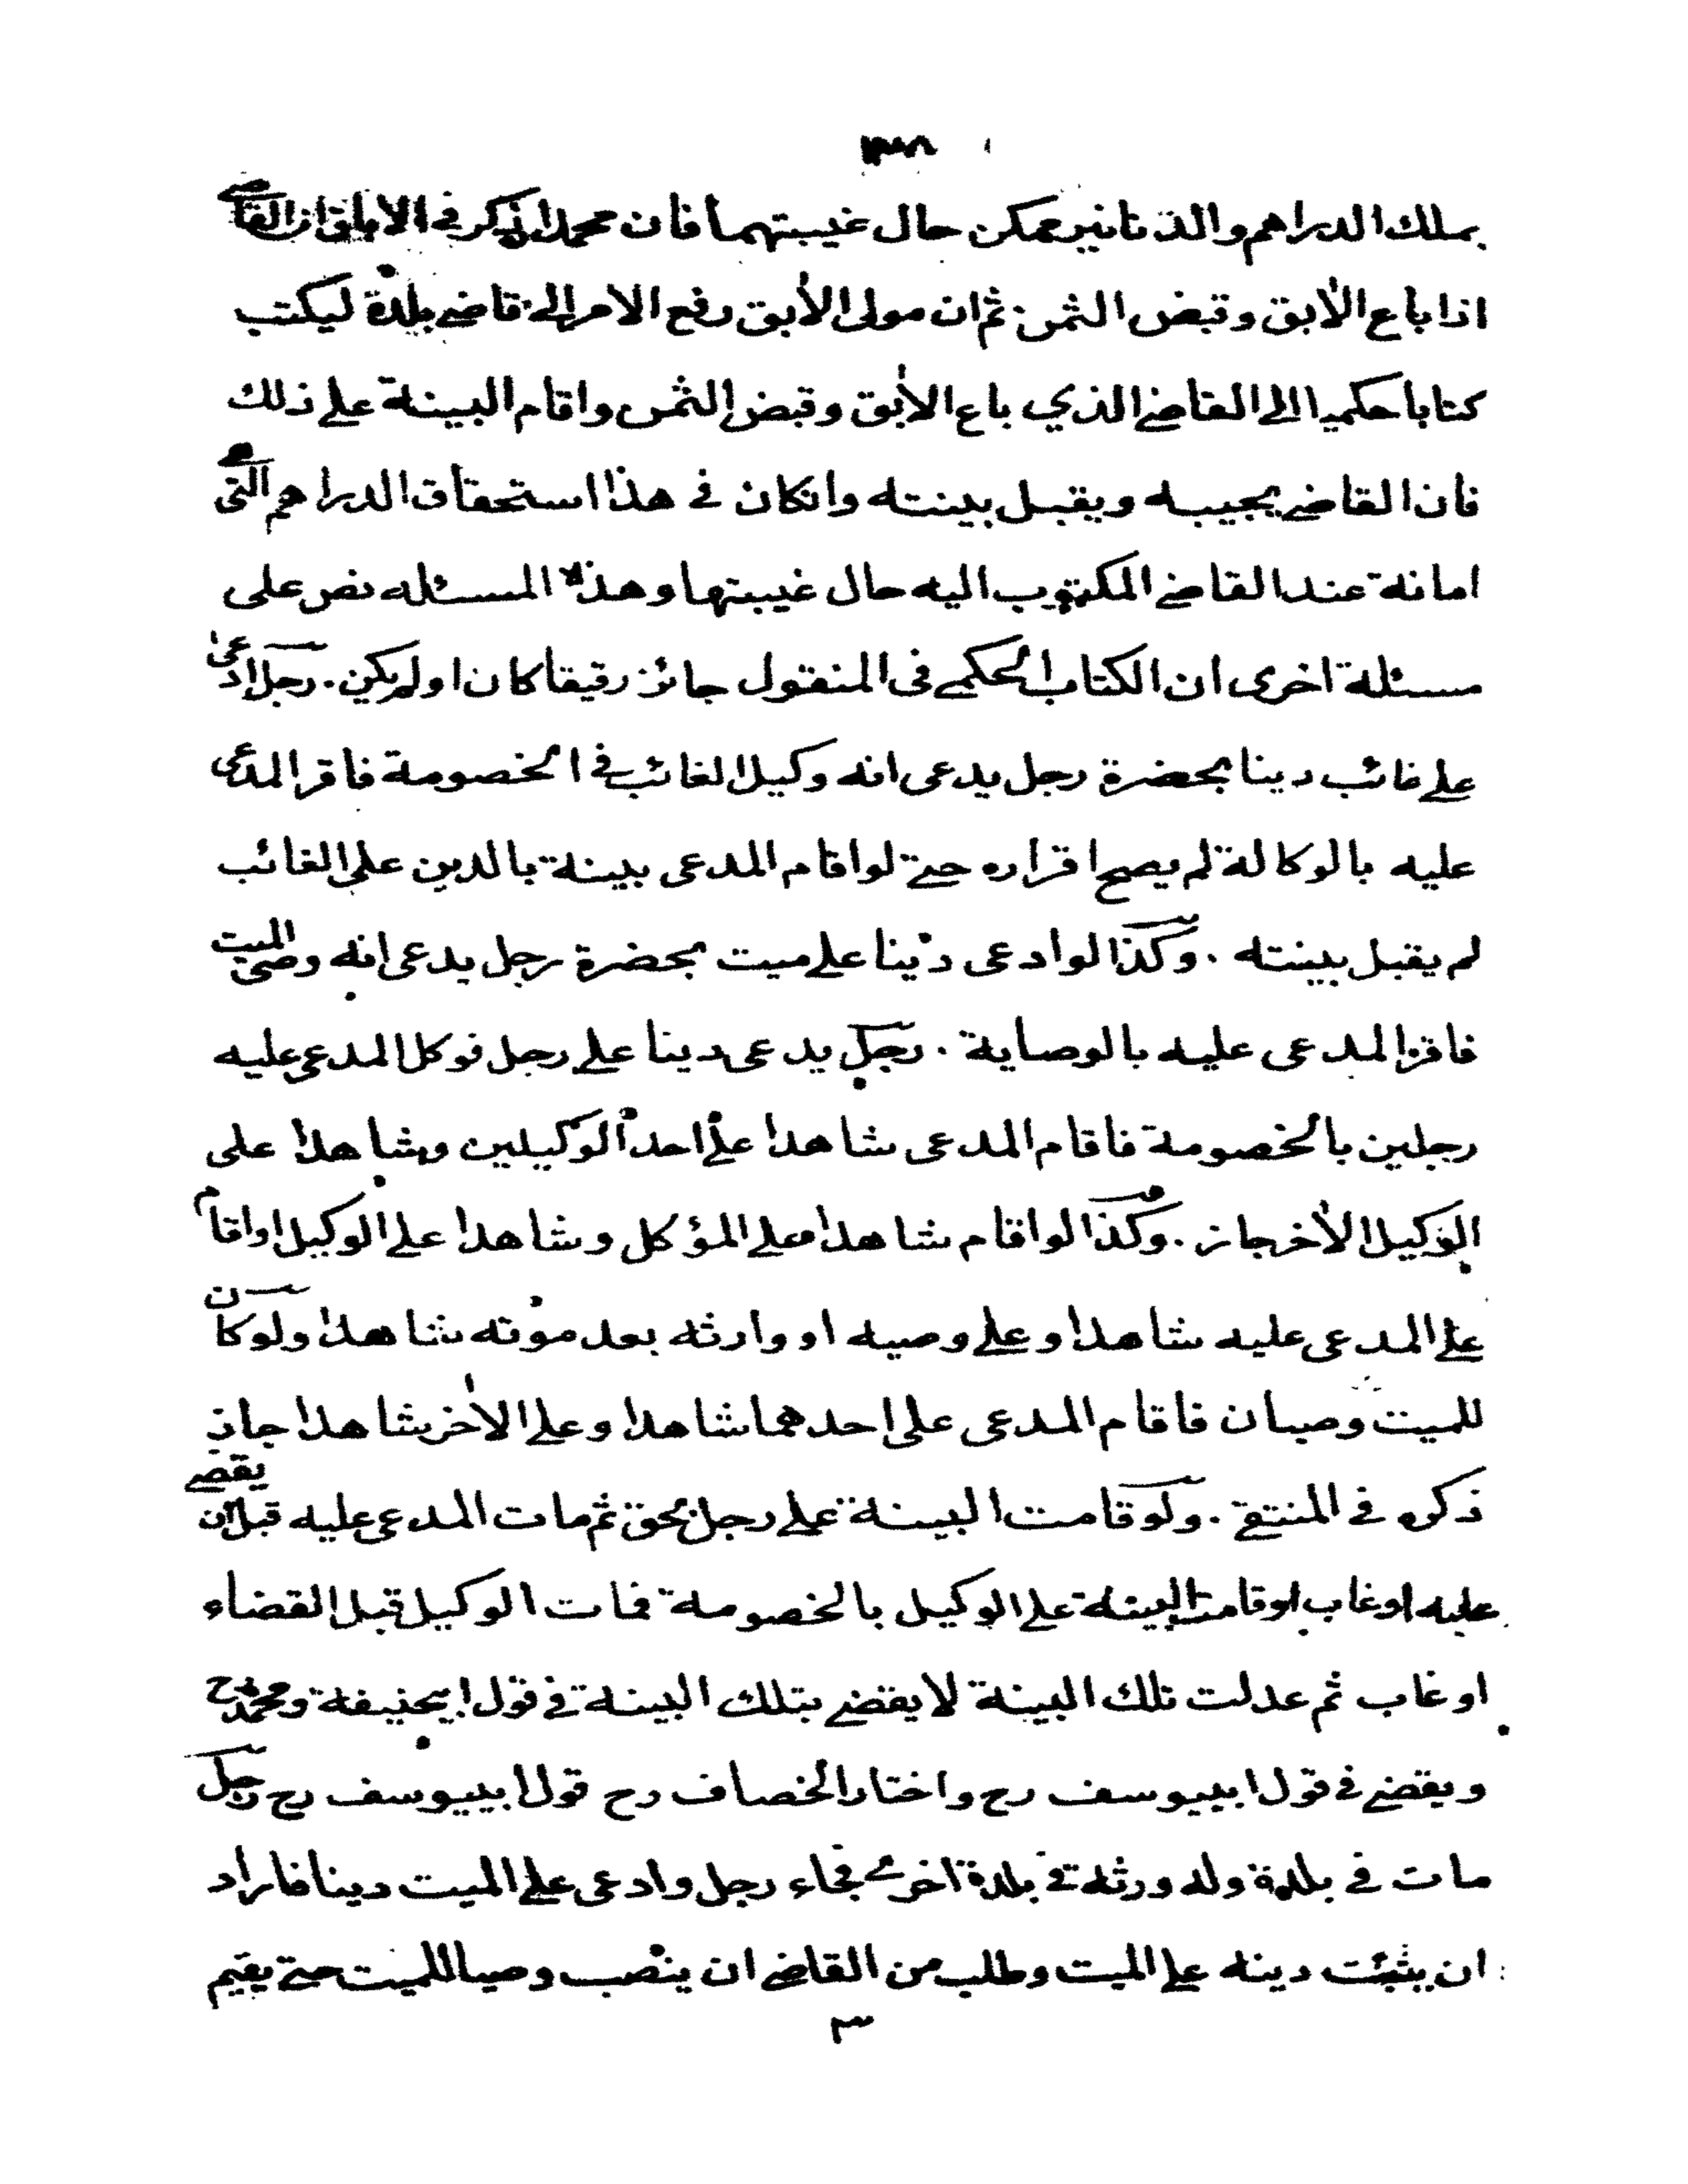 بملك الدراهم والدنانير ممكن حال غيبتهما فان محمدا ذكر في الاباق ان القاضي
اذا باع الآبق وقبض الثمن ثم ان مولى الآبق رفع الامر الى قاضي بلدة ليكتب
كتابا حكميا الى القاضي الذي باع الآبق وقبض الثمن واقام البينة على ذلك
فان القاضي يجيبه ويقبل بينته وانكان في هذا استحقاق الدراهم التي هي
امانة عند القاضي المكتوب اليه حال غيبتها وهذه المسئله نص على
مسئلة اخرى ان الكتاب الحكمي في المنقول جائز رقيقا كان او لم يكن . رجل ادعى
على غائب دينا بحضرة رجل يدعى انه وكيل الغائب في الخصومة فاقر المدعى
عليه بالوكالة لم يصح اقراره حتى لو اقام المدعى بينة بالدين على الغائب
لم يقبل بينته . وكذا لو ادعى دينا على ميت بحضرة رجل يدعى انه وصي الميت
فاقر المدعى عليه بالوصاية . رجل يدعى دينا على رجل فوكل المدعى عليه
رجلين بالخصومة فاقام المدعى شاهدا على احد الوكيلين وشاهدا على
الوكيل الآخر جاز . وكذا لو اقام شاهدا على المؤكل وشاهدا على الوكيل او اقام
على المدعى عليه شاهدا وعلى وصيه او وارثه بعد موته شاهدا ولو كان
للميت وصيان فاقام المدعى على احدهما شاهدا وعلى الآخر شاهدا جاز
ذكره في المنتقى . ولو قامت البينة على رجل بحق ثم مات المدعى عليه قبل ان يقضى
عليه او غاب او قامت البينة على الوكيل بالخصومة فمات الوكيل قبل القضاء
او غاب ثم عدلت تلك البينة لا يقضى بتلك البينة في قول ابيحنيفة ومحمد رح
ويقضى في قول ابييوسف رح واختار الخصاف رح قول ابييوسف رح رجل
مات في بلدة وله ورثة في بلدة اخرى فجاء رجل وادعى على الميت دينا فاراد
ان يثبت دينه على الميت وطلب من القاضي ان ينصب وصيا للميت حتى يقيم